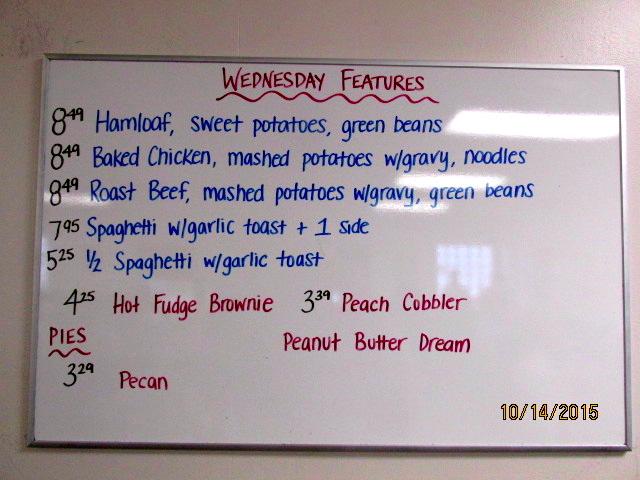 WEDNESDAY FEATURES
8⁴⁹ Hamloaf, sweet potatoes, green beans
8⁴⁹ Baked Chicken, mashed potatoes w/gravy, noodles
8⁴⁹ Roast Beef, mashed potatoes w/gravy, green beans
7⁹⁵ Spaghetti w/garlic toast + 1 side
5²⁵ 1/2 Spaghetti w/garlic toast
4²⁵ Hot Fudge Brownie 3³⁹ Peach Cobbler
PIES Peanut Butter Dream
3²⁹ Pecan
10/14/2015